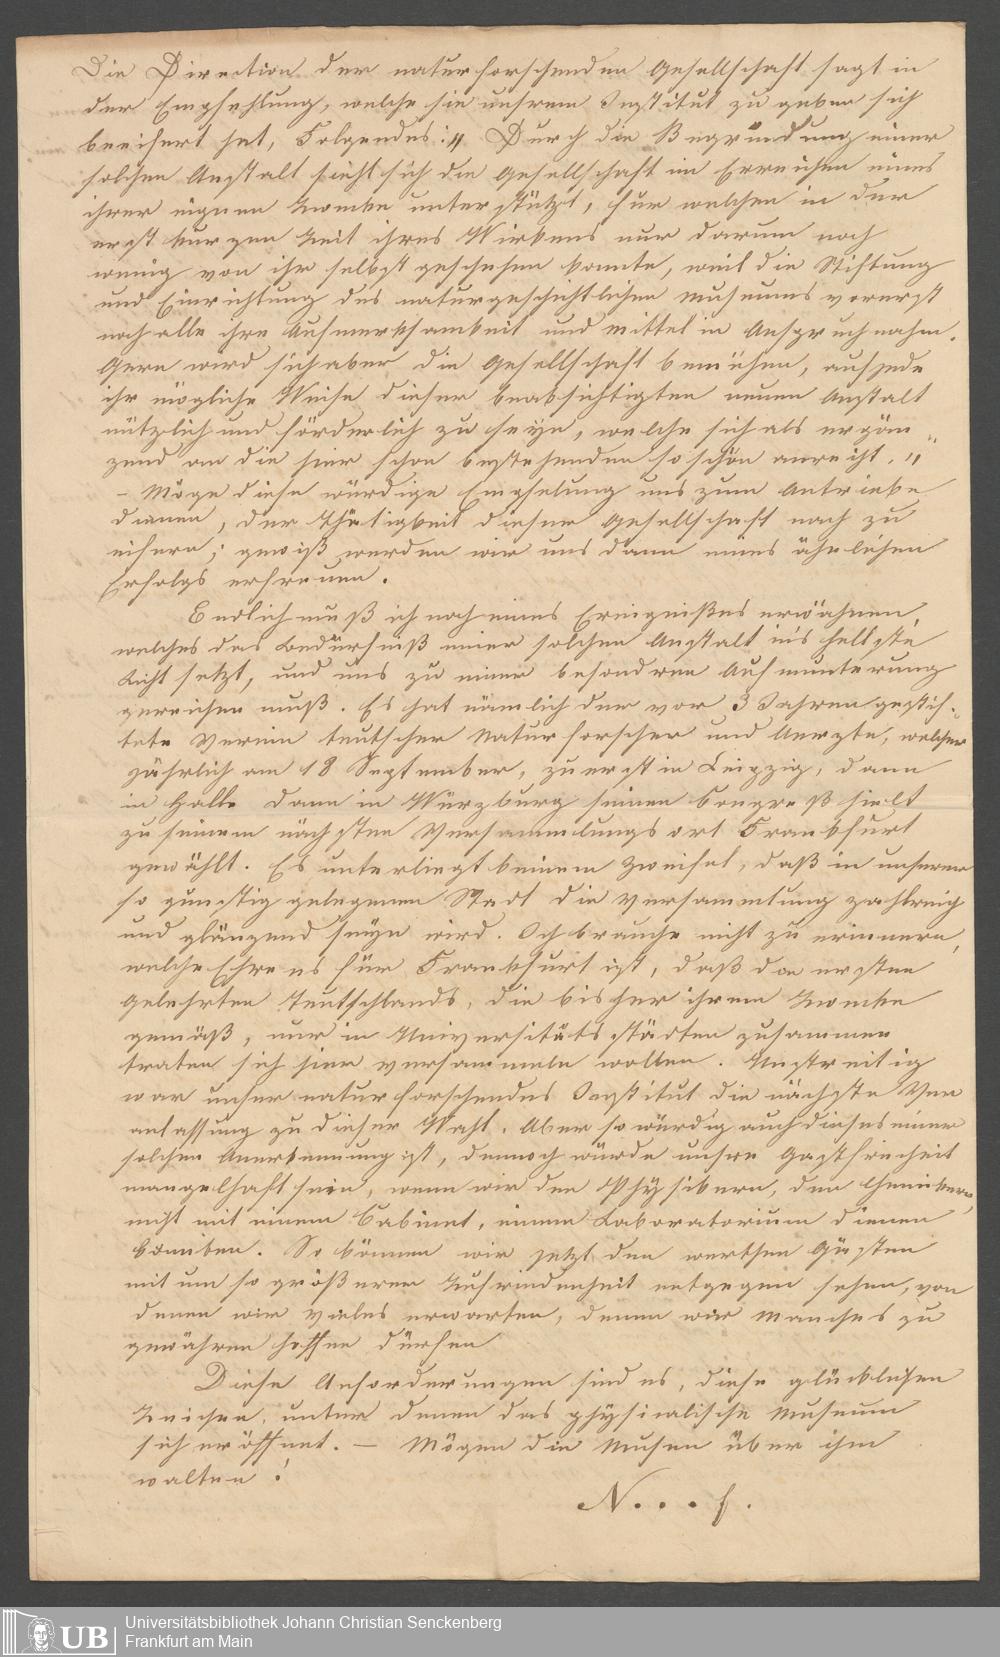 Die Direction der naturforschenden Gesellschaft sagt in
der Empfehlung, welche sie unsrem Institut zu geben sich
beeifert hat, Folgendes: „ Durch die Begründung einer
solchen Anstalt sieht sich die Gesellschaft im Erreichen eines
ihrer eignen Zwecke unterstützt, für welchen in der
erst kurzen Zeit ihres Wirkens nur darum noch
wenig von ihr selbst geschehen konnte, weil die Stiftung
und Einrichtung des naturgeschichtlichen Museums vorerst
noch alle ihre Aufmerksamkeit und Mittel in Anspruch nahm.
Gern wird sich aber die Gesellschaft bemühen, auf jede
ihr mögliche Weise dieser beabsichtigten neuen Anstalt
nützlich und förderlich zu seyn, welche sich als ergän„
zend an die hier schon bestehenden so schön anreiht. „
– Möge diese würdige Empfelung uns zum Antriebe
dienen, der Thätigkeit dieser Gesellschaft nach zu
eifern; gewiß werden wir uns dann eines ähnlichen
Erfolgs erfreuen.
Endlich muß ich noch eines Ereignißes erwähnen,
welches das Bedürfniß einer solchen Anstalt in's hellste
Licht setzt, und uns zu einer besondren Aufmunterung
gereichen muß. Es hat nämlich der vor 3 Jahren gestif-
tete Verein teutscher Naturforscher und Aerzte, welcher
jährlich am 18 September, zuerst in Leipzig, dann
in Halle dann in Würzburg seinen Congreß hielt
zu seinem nächsten Versammlungsort Frankfurt
gewählt. Es unterliegt keinem Zweifel, daß in unserer
so günstig gelegenen Stadt die Versammlung zahlreich
und glänzend seyn wird. Ich brauche nicht zu erinnern,
welche Ehre es für Frankfurt ist, daß die ersten
Gelehrten Teutschlands, die bisher ihrem Zwecke
gemäß, nur in Universitätsstädten zusammen
traten sich hier versammeln wollen. Unstreitig
war unser naturforschendes Institut die nächste Ver
anlassung zu dieser Wahl. Aber so würdig auch dieses einer
solchen Anerkennung ist, dennoch würde unsre Gastfreiheit
mangelhaft sein, wenn wir den Physikern, den Chemikern,
nicht mit einem Cabinet, einem Laboratorium dienen
könnten. So können wir jetzt den werthen Gästen
mit um so größerer Zufriedenheit entgegen sehen, von
denen wir vieles erwarten, denen wir Manches zu
gewähren hoffen dürfen
Diese Anforderungen sind es, diese glücklichen
Zeichen, unter denen das physicalische Museum
sich eröffnet. – Mögen die Musen über ihm
walten!
N . . . f.
Universitätsbibliothek Johann Christian Senckenberg
Frankfurt am Main
UB